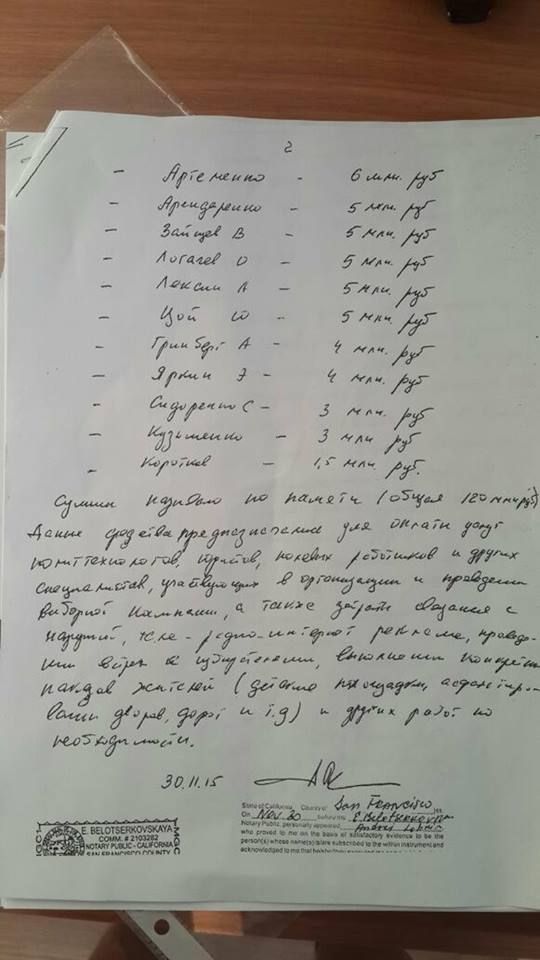 2
- Артеменко - 6 млн. руб
- Арендаренко - 5 млн. руб
- Зайцев В - 5 млн. руб
- Логачев О - 5 млн. руб
- Лексин А - 5 млн. руб
- Цой Ю - 5 млн. руб
- Гринберг А - 4 млн. руб
- Яркин Э - 4 млн. руб
- Сидоренко С - 3 млн. руб
- Кузьменко - 3 млн. руб
- Коротков - 1,5 млн. руб.
Суммы называю по памяти (общая 120 млн руб)
Данные средства предназначены для оплаты услуг
политтехнологов, юристов, полевых работников и других
специалистов, участвующих в организации и проведении
выборной кампании, а также затрат связанных с
наружной, теле-радио-интернет рекламе, проведе-
нии встреч с избирателями, выполнении
наказов жителей (детские площадки, асфальтиро-
вание дворов, дорог и т.д) и других работ по
необходимости.
30.11.15
State of California County of San Francisco
On Nov 30 before me E. Belotserkovskaya
Notary Public, personally appeared Andrei
who proved to me on the basis of satisfactory evidence to be the
person(s) whose name(s) is/are subscribed to the within instrument and
E. BELOTSERKOVSKAYA
COMM. # 2103282
NOTARY PUBLIC - CALIFORNIA
SAN FRANCISCO COUNTY